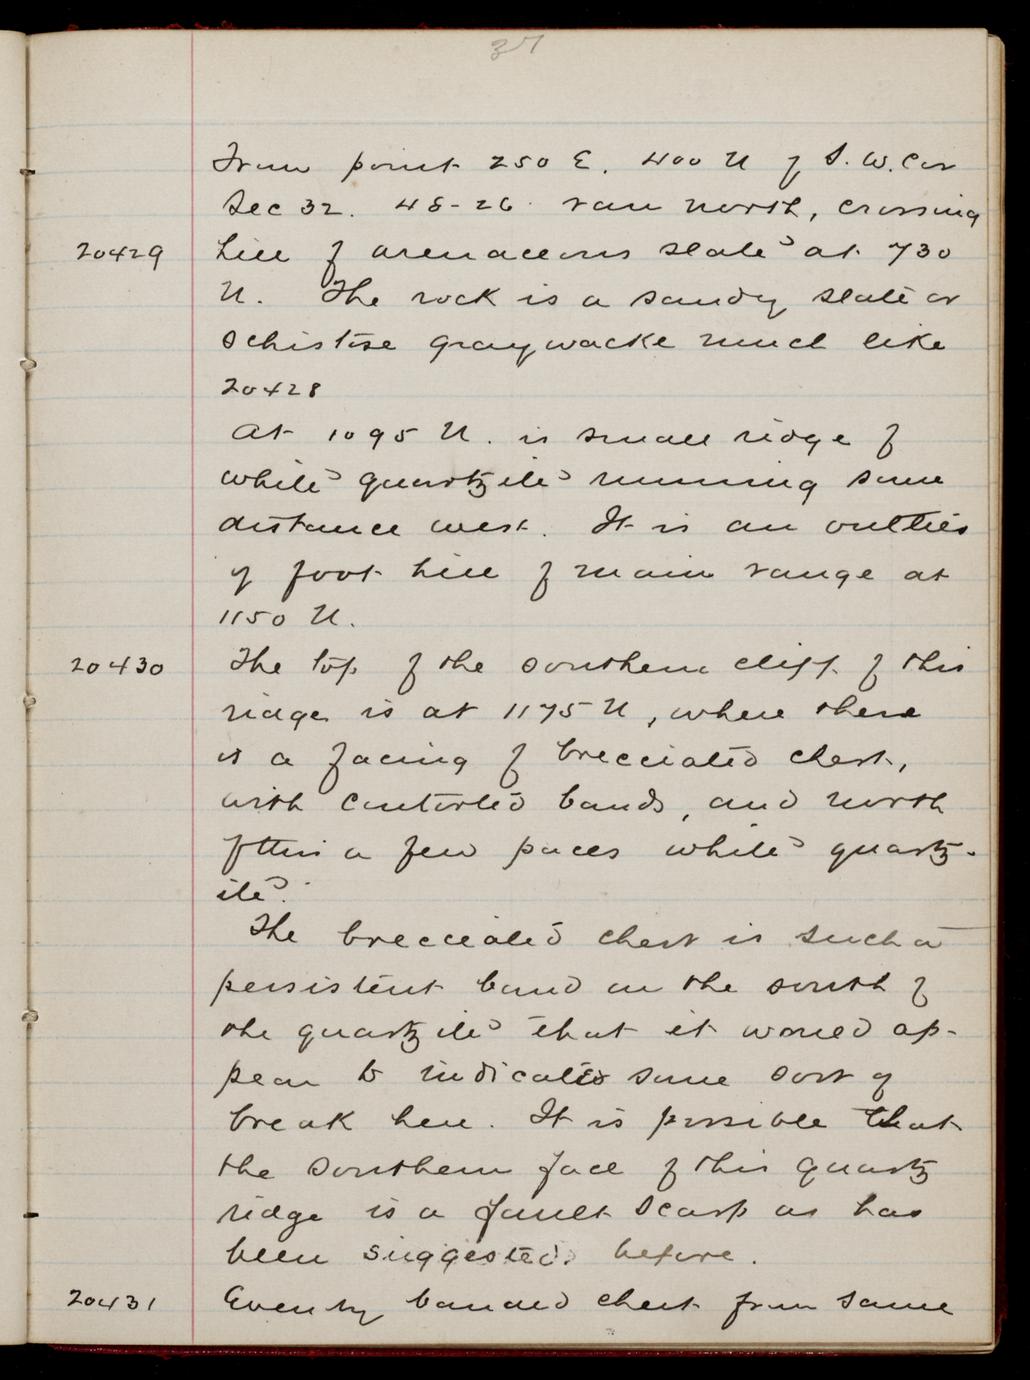 37
From point 250 E. 400 N of S.W. Cor
Sec 32. 48-26 ran north, crossing
20429 hill of arenaceous slate at 730
N. The rock is a sandy slate or
schistose graywacke much like
20428
At 1095 N. is small ridge of
white quartzite running some
distance west. It is an outlier
of foot hill of main range at
1150 N.
20430 The top of the southern cliff of this
ridge is at 1175 N, where there
is a facing of brecciated chert,
with contorted bands, and north
of this a few paces white quartz-
ite.
The brecciated chert is such a
persistent band on the south of
the quartzite that it would ap-
pear to indicate some sort of
break here. It is possible that
the southern face of this quartz
ridge is a fault scarp as has
been suggested before.
20431 Evenly banded chert from same